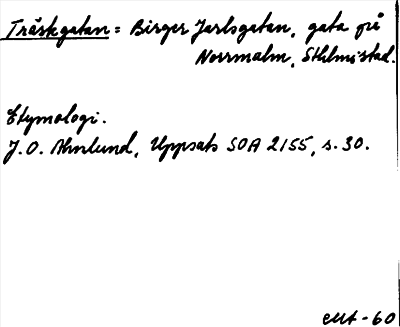 Träskgatan = Birger Jarlsgatan, gata på
Norrmalm, Sthlms stad.
Etymologi.
J.O. Ahnlund, Uppsats SOA 2155, s. 30.
-60